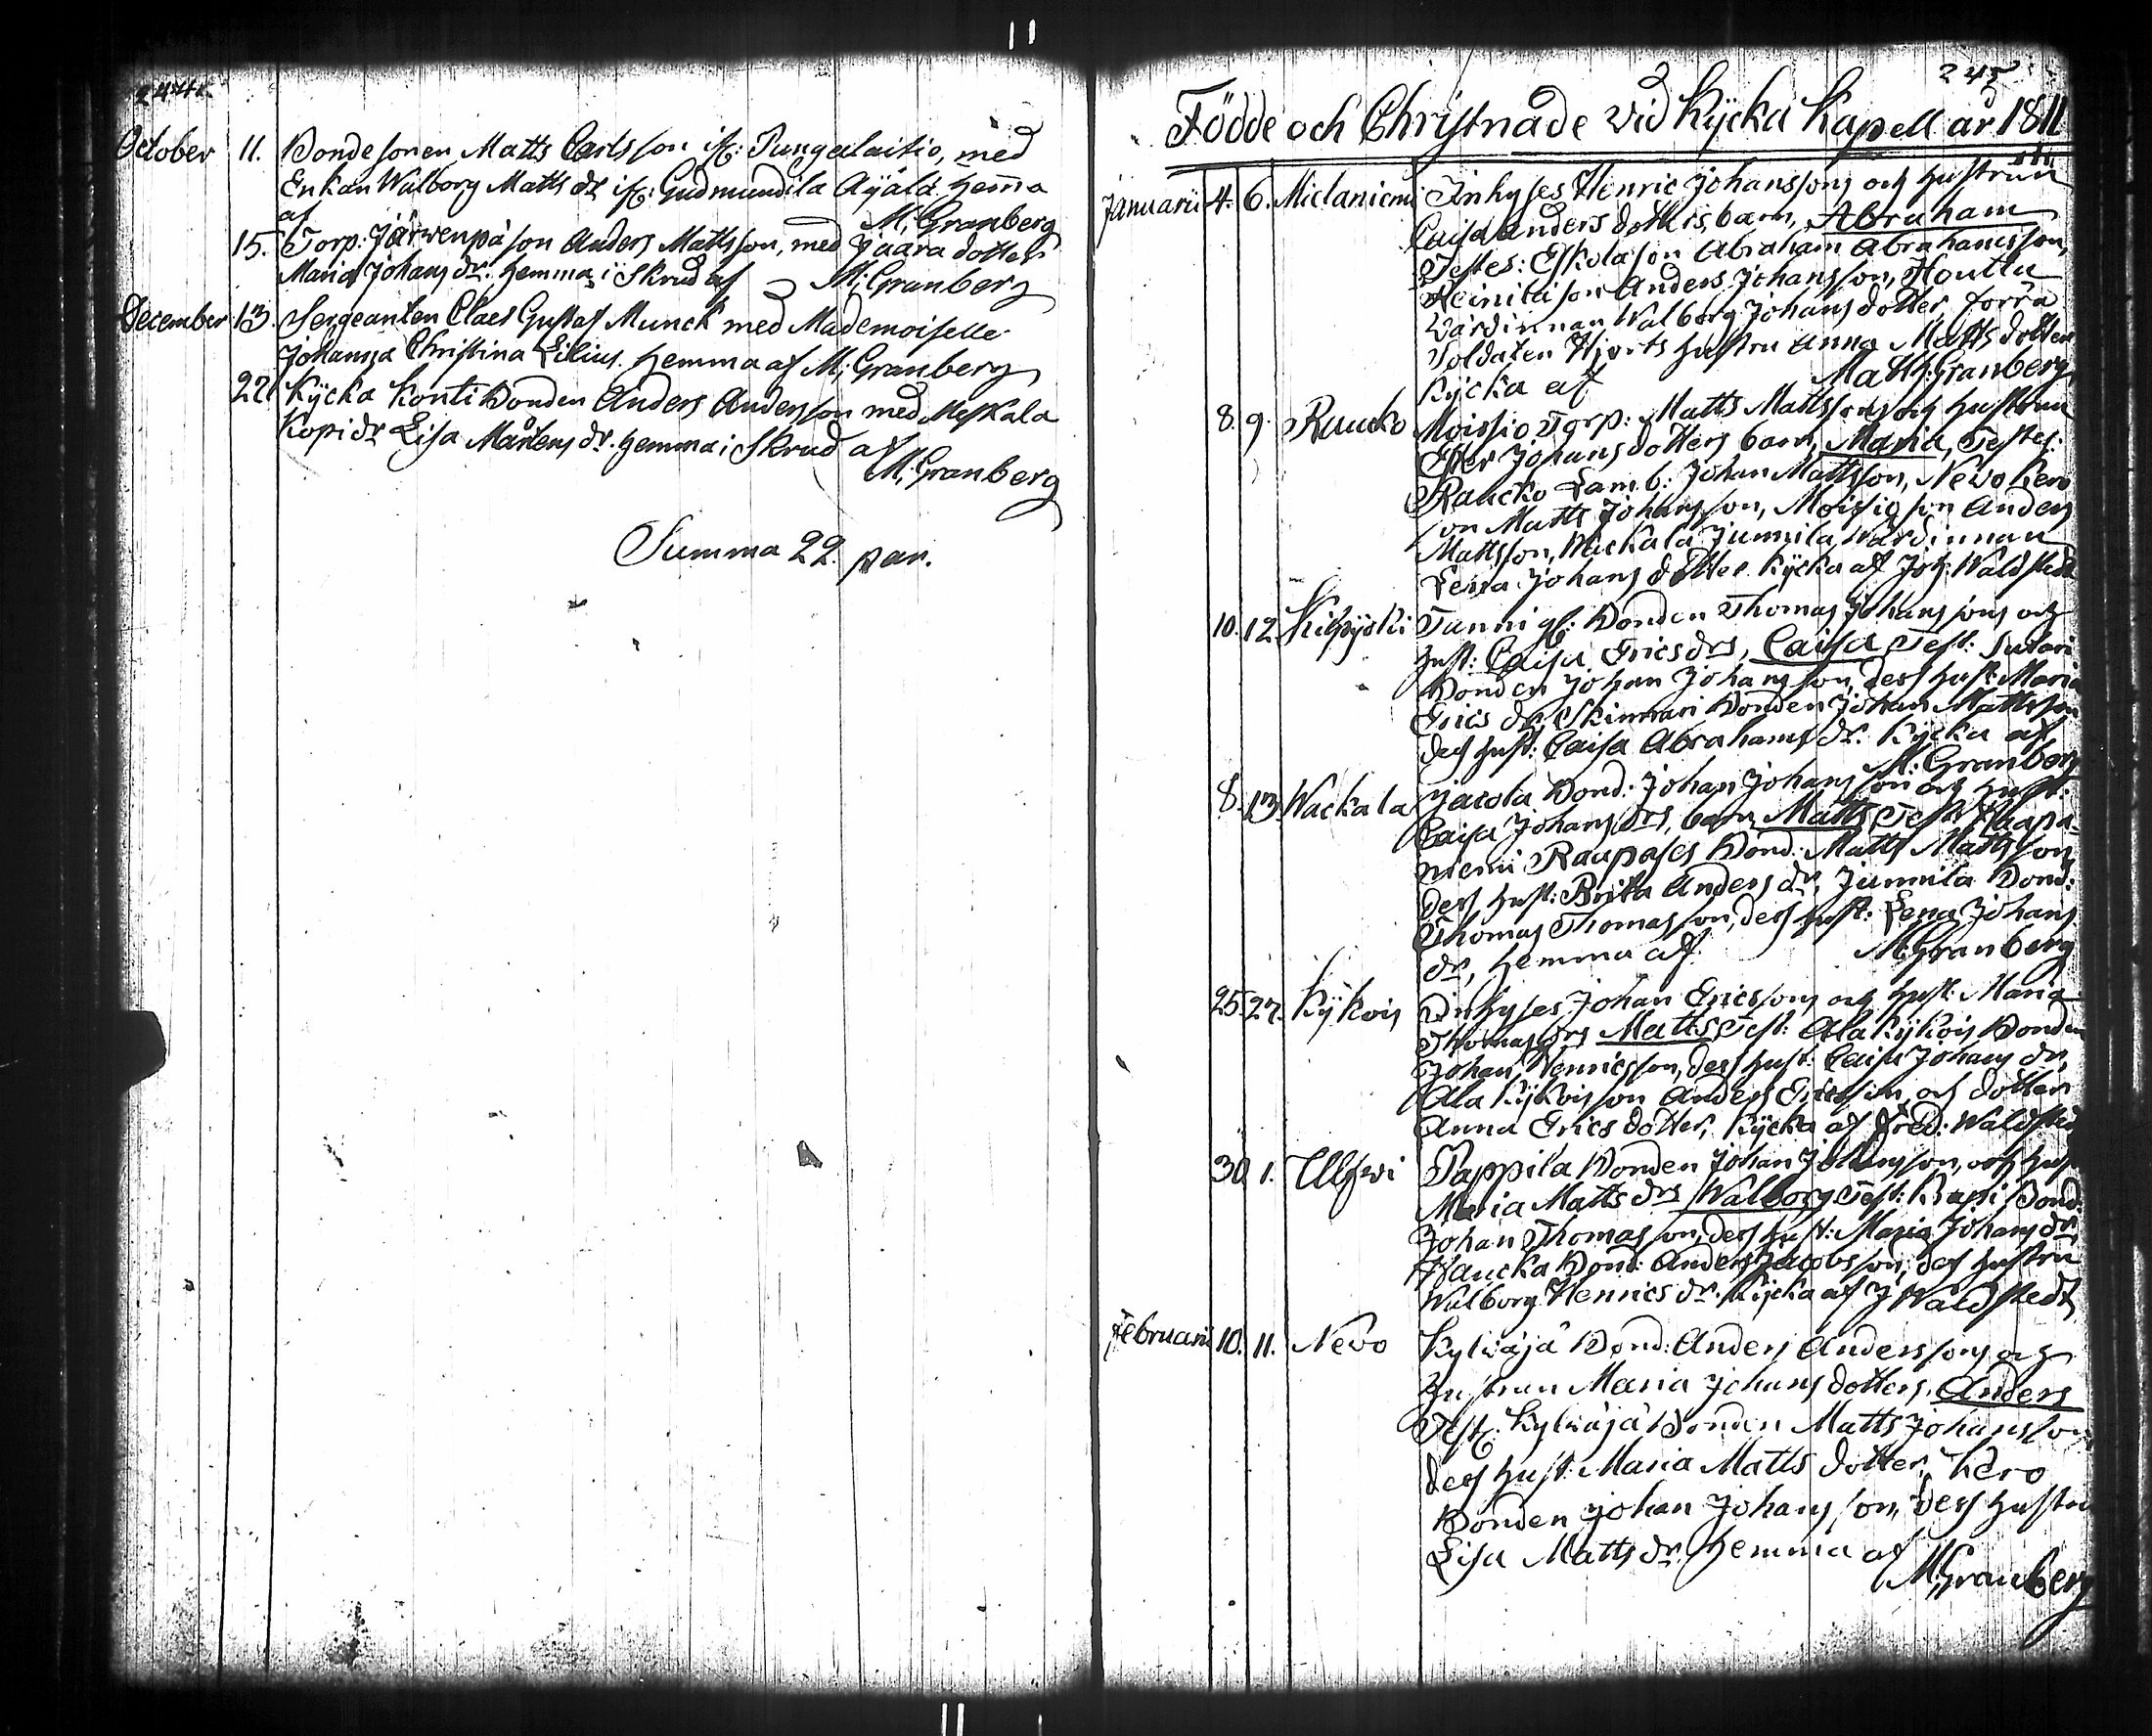 244.
October 11. Bondesonen Matts Carlsson ifr: Pungalaitio, med
Enkan Walborg Matts dr ifr: Gudmundila Äyälä hemma
af M; Granberg
15. Torp: Järwenpä son Anders Mattsson, med Jaara dotter
Maria Johans dr: hemma i Skrud af M; Granberg
December 13. Sergeanten Claes Gustaf Munck med Mademoiselle
Johanna Christina Lilius. hemma af M; Granberg
27. Kycka Konti Bonden Anders Andersson med Meskala
Kopi dr Lisa Mårtens dr. hemma i Skrud af
M; Granberg
Summa 22. par.
245
Födde och Christnade vid Kycka Kapell år 1811
Januarii 4. 6. Mielaniemi Inhyses Henric Johanssons och hustrun
Caisa Anders dotters, barn, Abraham
Testes: Eskola son Abraham Abrahamsson,
Heinilä son Anders Johansson, Houttu
Wärdinnan Walborg Johans dotter, förra
Soldaten Hjorts hustru Anna Matts dotter
Kycka af Matth: Granberg
8. 9. Raucko Moisio Torp: Matts Mattssons och hustrun
Ester Johans dotters barn, Maria, Testes:
Raucko Lamb: Johan Mattsson, Newo Kero
son Matts Johansson, Moisio son Anders
Mattsson, Wackala Junnila wärdinnan
Lena Johans dotter Kycka af Joh: Waldstedt
10. 12. Kilpijoki Tunni gl: Bonden Thomas Johanssons och
hust: Caisa Erics drs, Caisa Test: Sutari
Bonden Johan Johansson, dess hust: Maria
Erics dr, Skinnari Bonden Johan Mattsson
dess hust: Caisa Abrahams dr. Kycka af
M: Granberg
8. 13. Wackala Jacola Bond: Johan Johansson och hust:
Caisa Johans drs, barn Matts Test: Haapa-
niemi Raupases Bond: Matts Mattsson
dess hust: Brita Anders dr, Junnila Bond:
Thomas Thomasson, dess hust: Lena Johans
dr, hemma af M: Granberg
25. 27. Kykois Inhyses Johan Ericssons och hust: Maria
Thomas drs Matts, Test: Ala Kykois Bonden
Johan Henricsson, dess hust: Caisa Johans dr,
Ala Kykois son Anders Ericsson, och dotter
Anna Erics dotter, Kycka af Fred: Waldstedt
30. 1. Ulfwi Pappila Bonden Johan Johansson, och hust
Maria Matts drs Walborg Test: Krapi Bond:
Johan Thomasson, dess hust: Maria Johans dr
Haucka Bond: Anders Jacobsson, dess hustru
Walborg Henrics dr. Kycka af J Waldstedt
Februarii 10. 11. Newo Kylwäjä Bond: Anders Anderssons och
hustrun Maria Johans dotters, Anders
Test: Kylwäjä Bonden Matts Johansson
dess hust: Maria Matts dotter, Kero
Bonden Johan Johansson, dess hustru
Lisa Matts dr. hemma af
M; Granberg